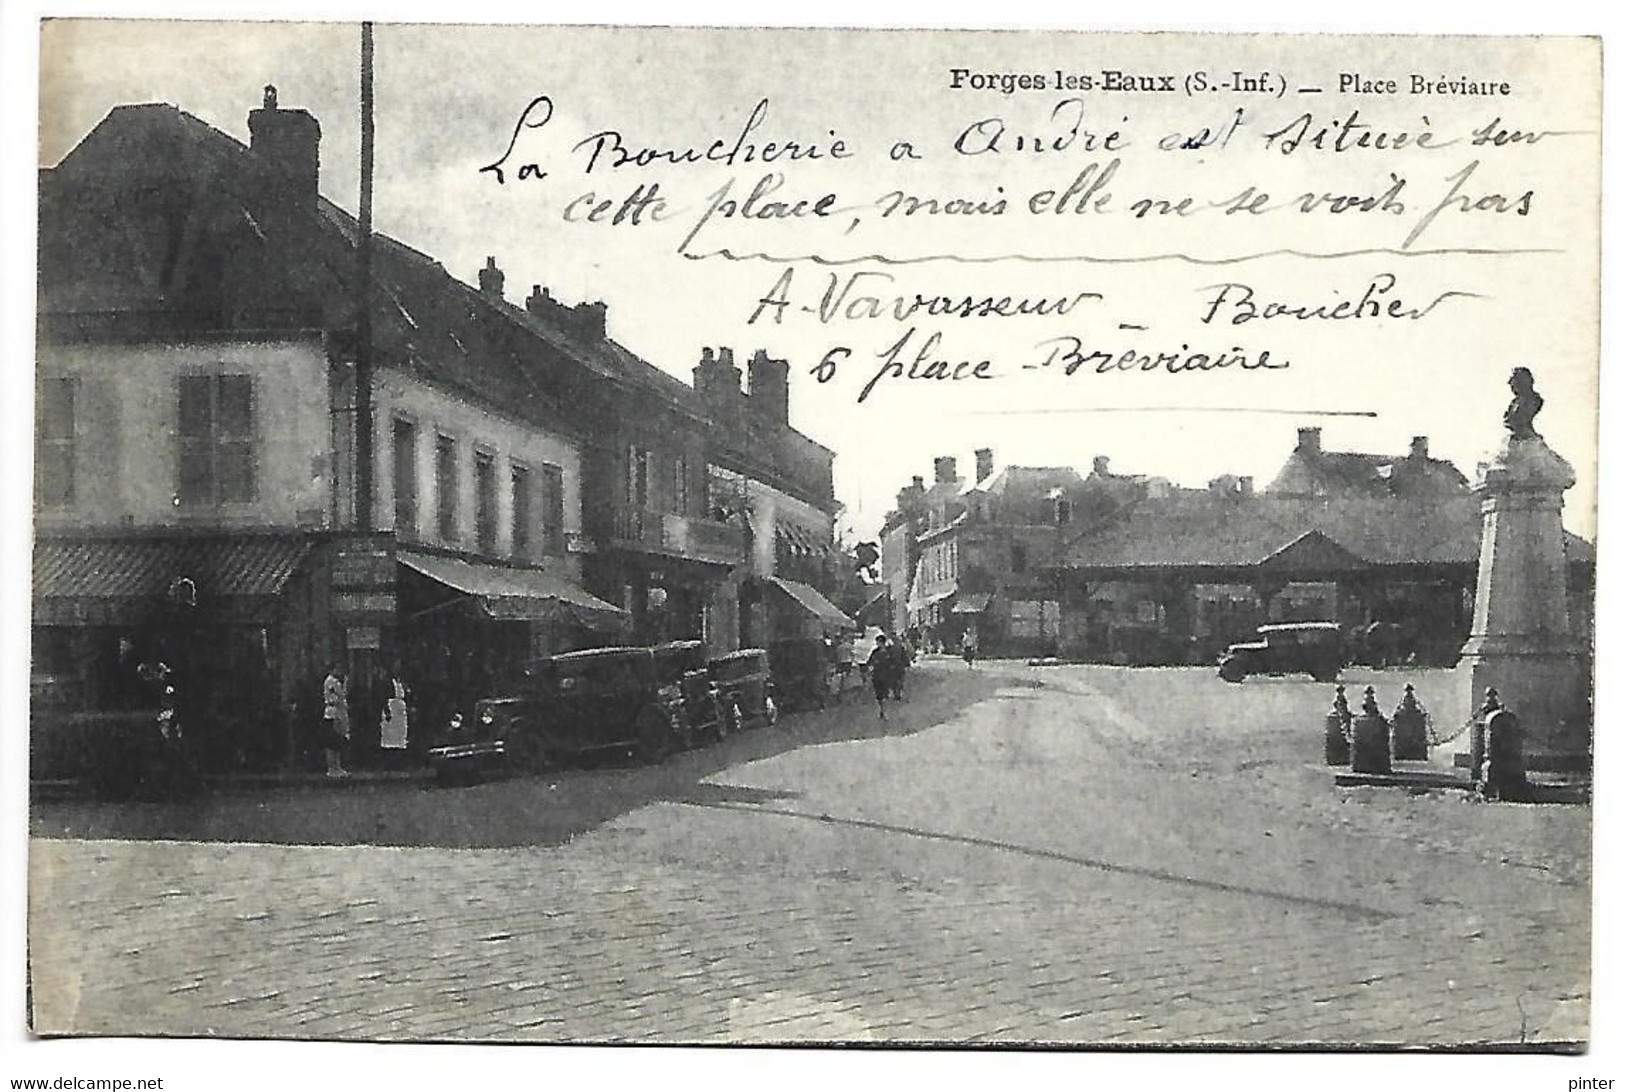 Forges-les-Eaux (S.-Inf.) — Place Bréviaire
La Boucherie a André est située sur
cette place, mais elle ne se voit pas
A. Vavasseur - Boucher
6 place Bréviaire
www.delcampe.net
pinter